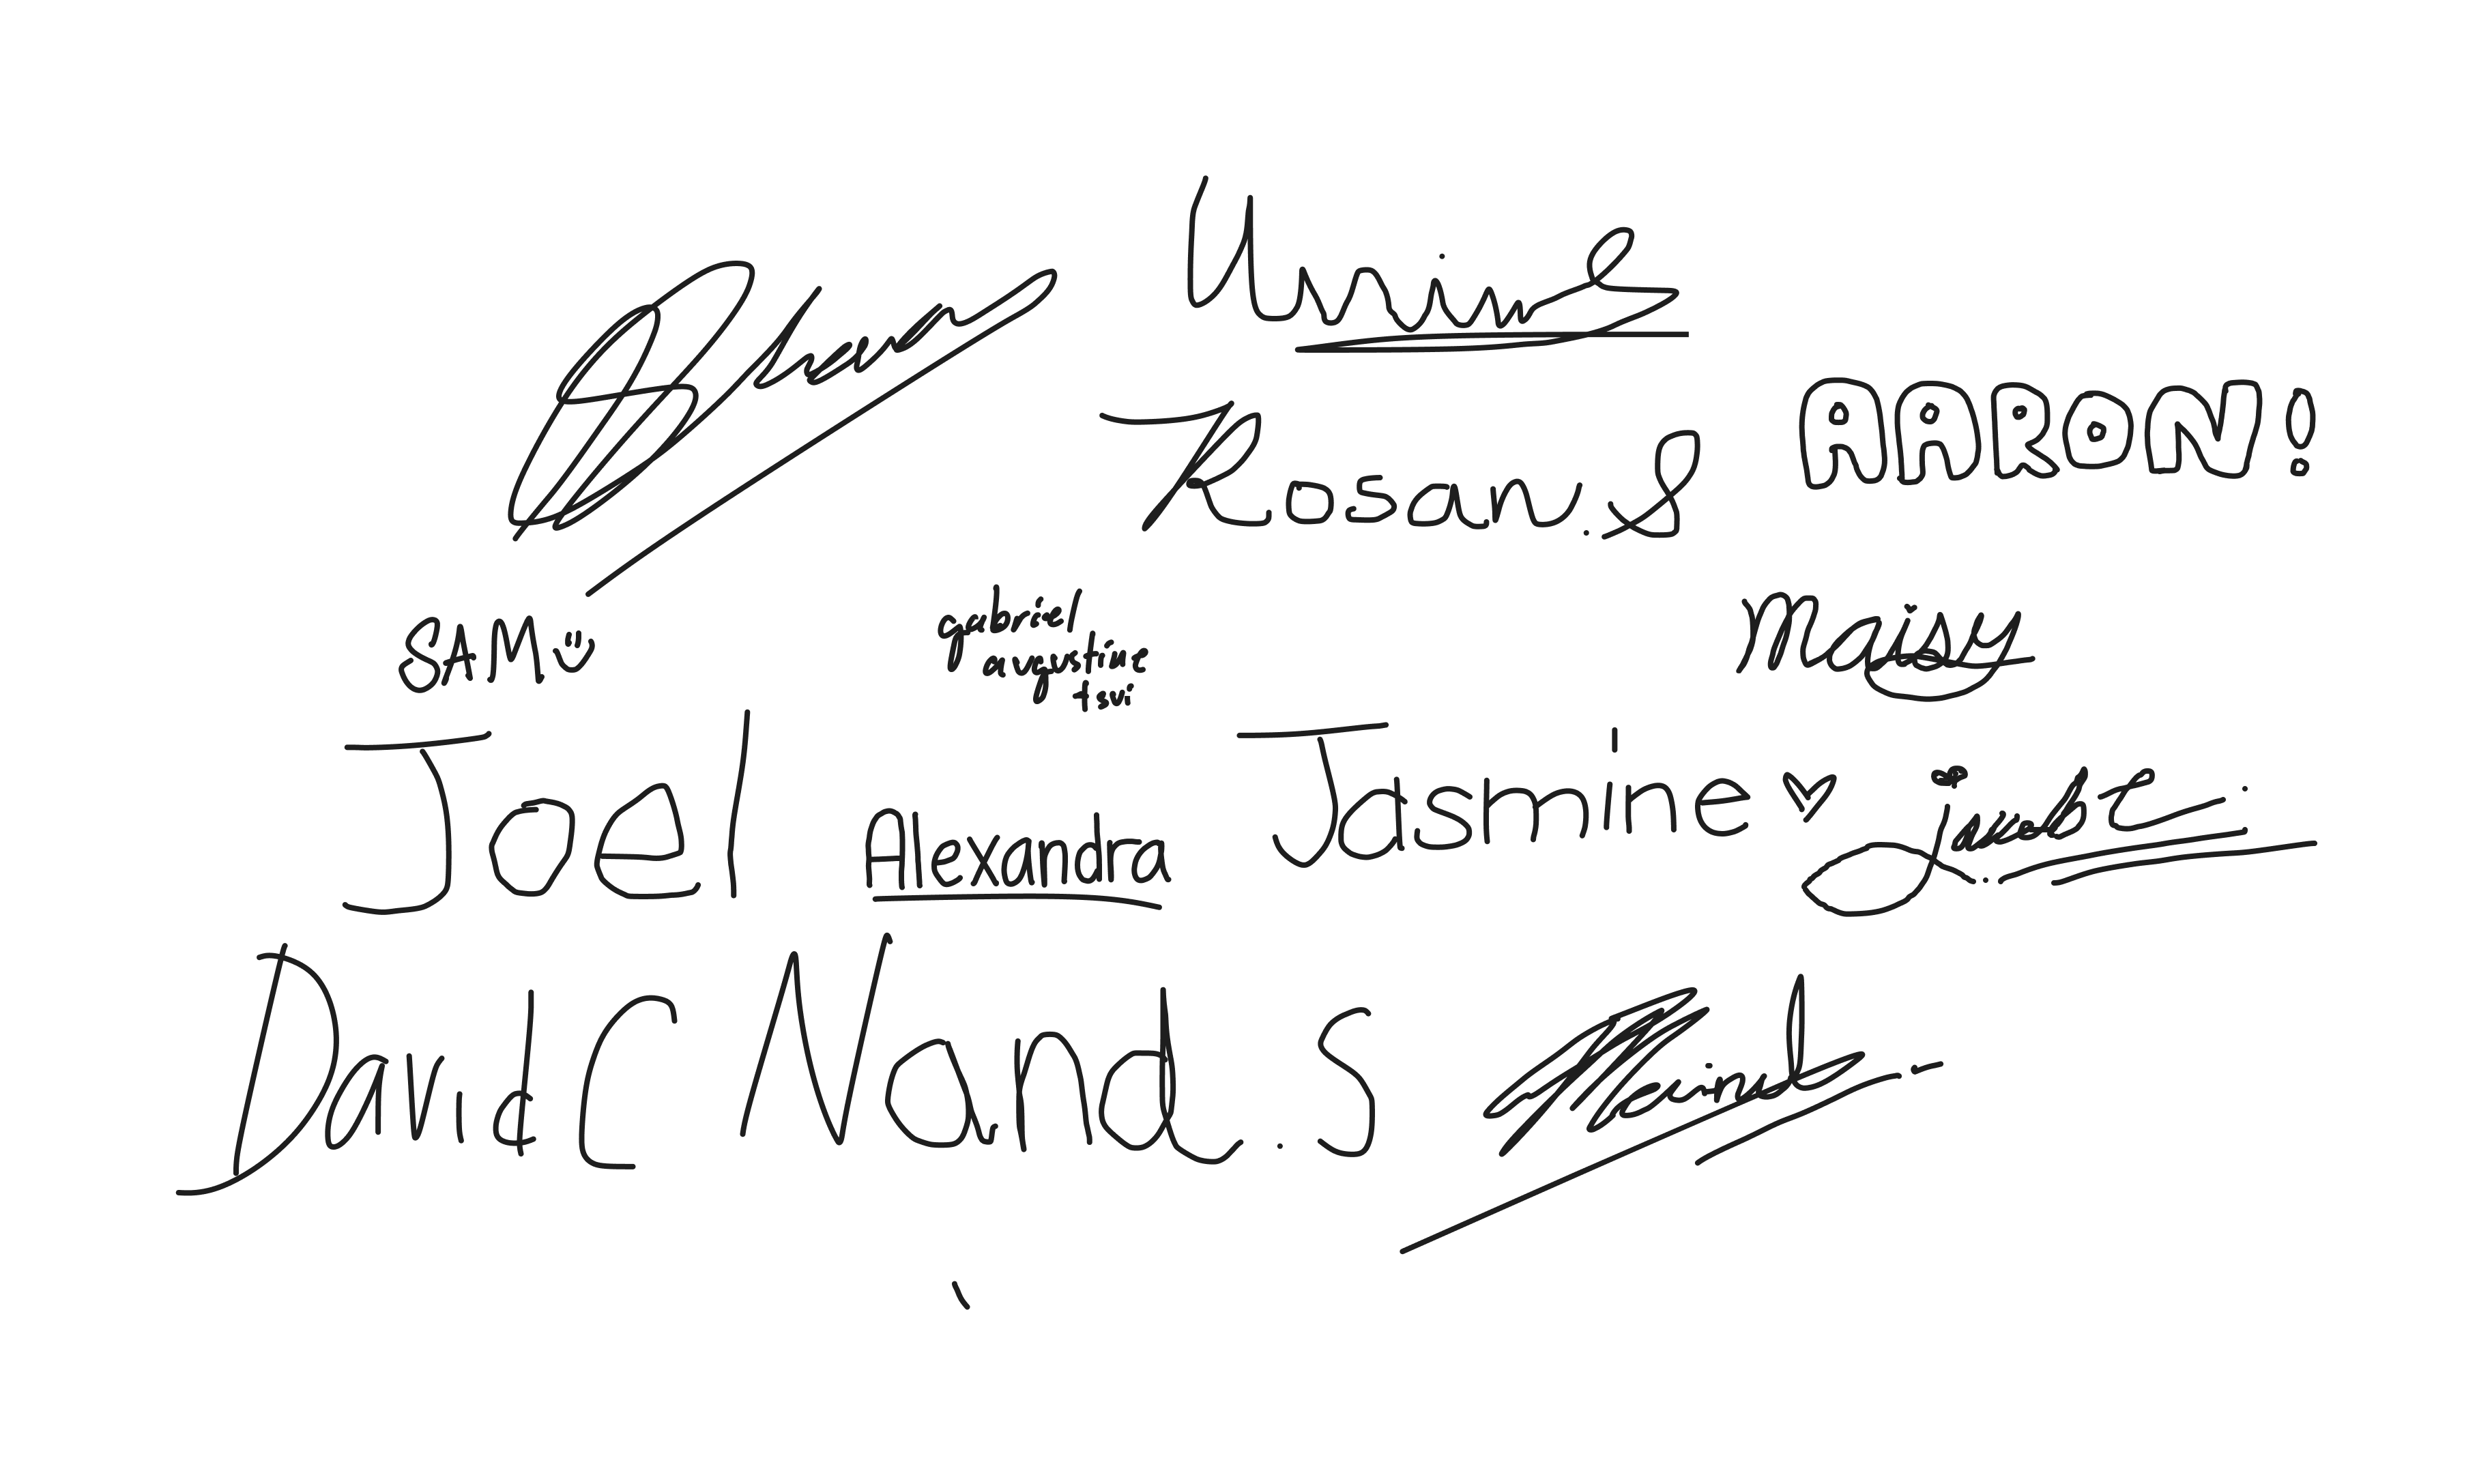 Rosan.S
AARON!
SAM
gabriel
augustine
tsui
Maisy
Joel
Alexandra
Jasmine
David C Nand.S